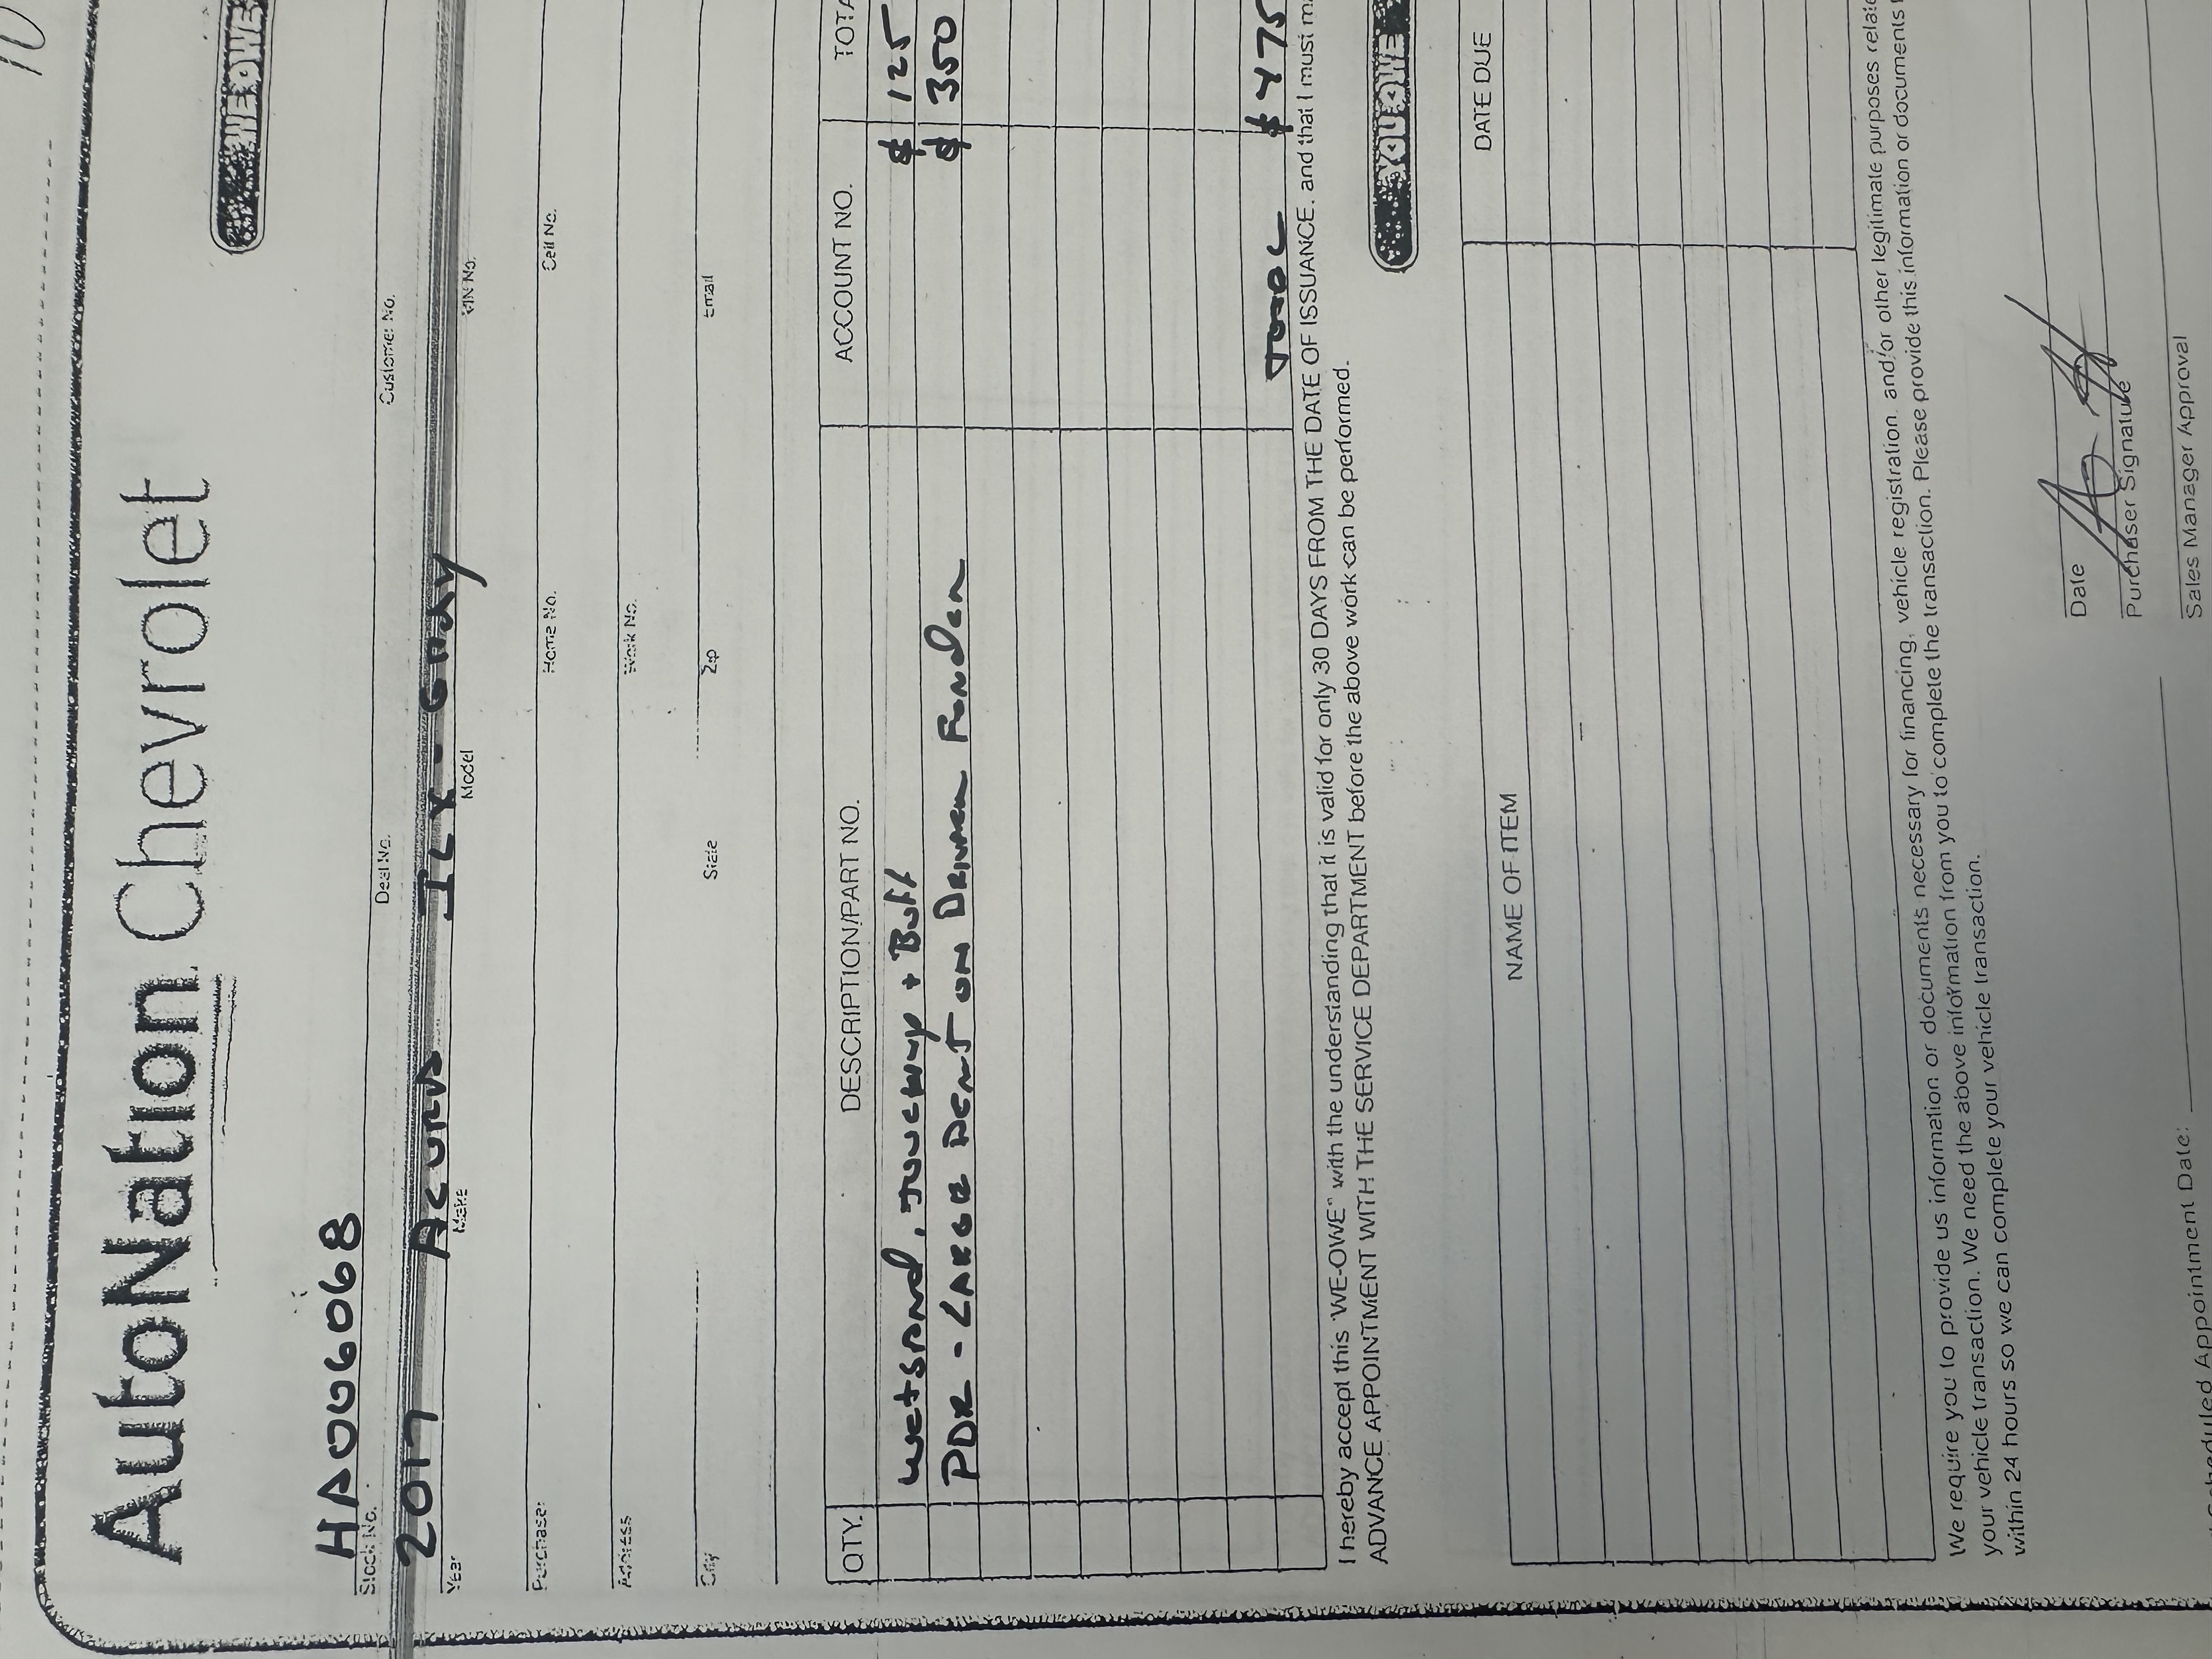 10
AutoNation Chevrolet
WE-OWE
HA006068
Stock No. Deal No. Customer No.
2017 ACURA ILX - GRAY
Year Make Model VIN No.
Purchaser Home No. Cell No.
Address Work No.
City State Zip Email
QTY. DESCRIPTION/PART NO. ACCOUNT NO. TOTA
wetsand, Touchup + Buff $ 125
PDR - LARGE DENT ON DRIVER Fender $ 350
TOTAL $ 475
I hereby accept this "WE-OWE" with the understanding that it is valid for only 30 DAYS FROM THE DATE OF ISSUANCE, and that I must m
ADVANCE APPOINTMENT WITH THE SERVICE DEPARTMENT before the above work can be performed.
YOU-OWE
NAME OF ITEM DATE DUE
We require you to provide us information or documents necessary for financing, vehicle registration, and/or other legitimate purposes relate
your vehicle transaction. We need the above information from you to complete the transaction. Please provide this information or documents
within 24 hours so we can complete your vehicle transaction.
Date
Purchaser Signature
Scheduled Appointment Date:
Sales Manager Approval